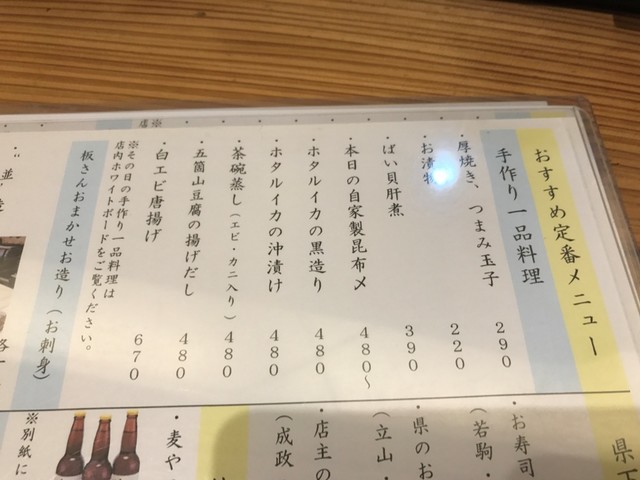 おすすめ定番メニュー
手作り一品料理
・厚焼き、つまみ玉子 290
・お漬物 220
・ばい貝肝煮 390
・本日の自家製昆布〆 480～
・ホタルイカの黒造り 480
・ホタルイカの沖漬け 480
・茶碗蒸し(エビ・カニ入り) 480
・五箇山豆腐の揚げだし 480
・白エビ唐揚げ 670
※その日の手作り一品料理は
店内ホワイトボードをご覧ください。
板さんおまかせお造り(お刺身)
・お寿司
(若駒・
・県のお
(立山・
・店主の
(成政
・麦や
※別紙に